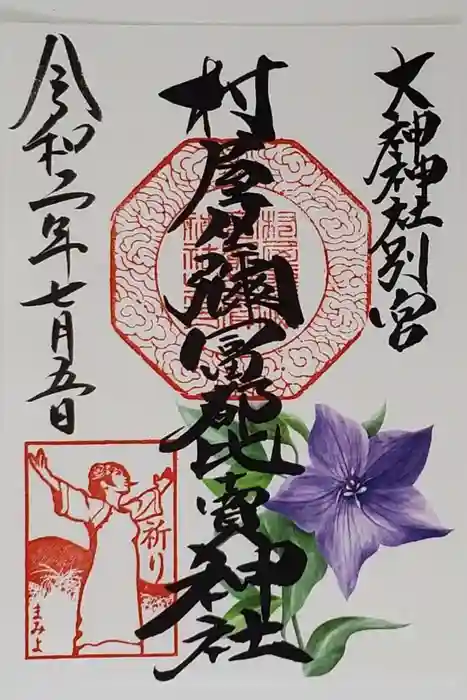 大神神社別宮
村屋坐彌冨都比賣神社
令和二年七月五日
祈り
まみよ